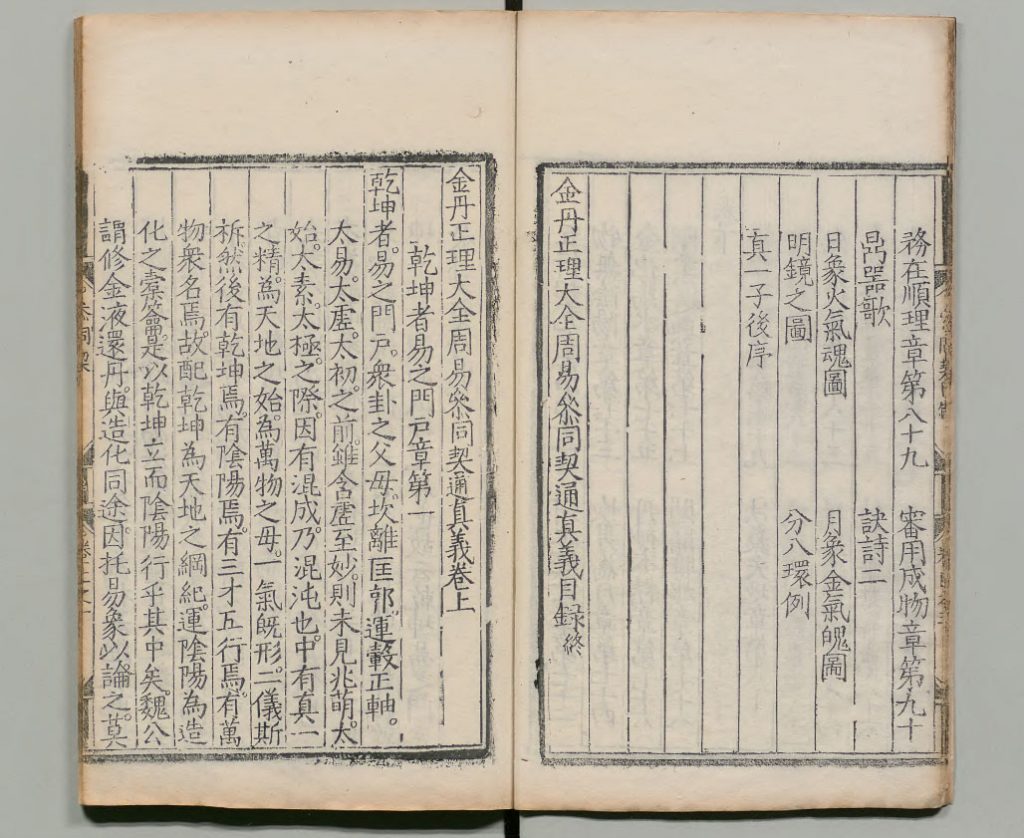 務在順理章第八十九 審用成物章第九十
鼎器歌 訣詩二
日象火氣魂圖 月象金氣魄圖
明鏡之圖 分八環例
真一子後序
金丹正理大全周易叅同契通真義目録終
金丹正理大全周易叅同契通真義卷上
乾坤者易之門戸章第一
乾坤者。易之門戸。衆卦之父母。坎離匡郭。運轂正軸。
大易。太虛。太初。之前。雖含虛至妙。則未見兆萌。太
始。太素。太極。之際。因有混成。乃混沌也。中有真一
之精。為天地之始。為萬物之母。一氣既形。二儀斯
柝。然後有乾坤焉。有陰陽焉。有三才五行焉。有萬
物衆名焉。故配乾坤為天地之綱紀。運陰陽為造
化之橐龠。是以乾坤立而陰陽行乎其中矣。魏公
謂修金液還丹。與造化同途。因托易象以論之。莫